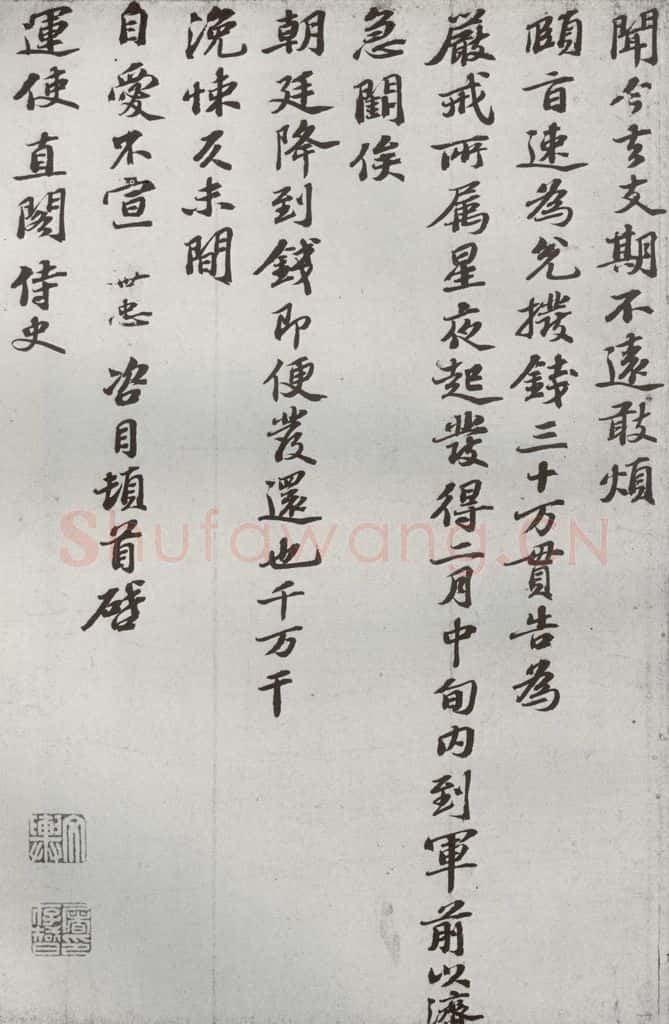 聞今去支期不遠敢煩
頤旨速為兌撥錢三十万貫告為
嚴戒所属星夜起發得二月中旬内到軍前以濟
急闕俟
朝廷降到錢即便發還也千万干
浼悚久未間
自愛不宣 世忠 咨目頓首啓
運使直閣侍史
Shufawang.CN